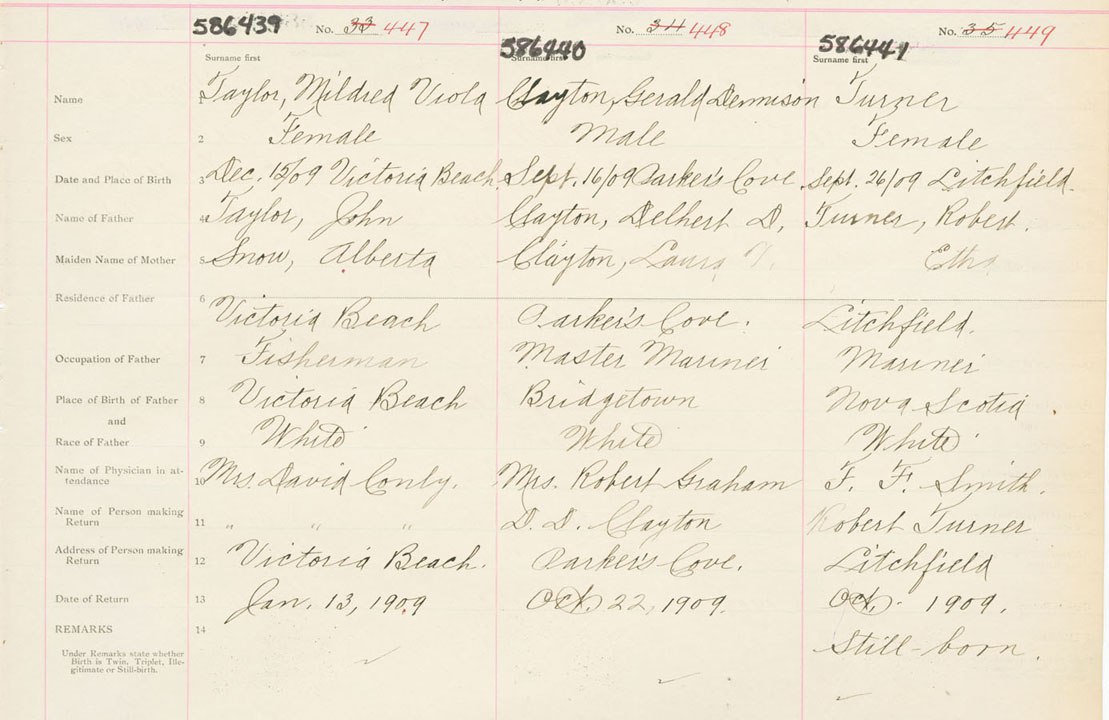 586439 No. 33 447
586440 No. 34 448
586441 No. 35 449
Surname first Surname first Surname first
Name 1 Taylor, Mildred Viola Clayton, Gerald Dennison Turner
Sex 2 Female Male Female
Date and Place of Birth 3 Dec. 15/09 Victoria Beach Sept. 16/09 Parker's Cove. Sept. 26/09 Litchfield.
Name of Father 4 Taylor, John Clayton, Delbert D. Turner, Robert.
Maiden Name of Mother 5 Snow, Alberta Clayton, Laura Etha
Residence of Father 6 Victoria Beach Parker's Cove. Litchfield.
Occupation of Father 7 Fisherman Master Mariner Mariner
Place of Birth of Father 8 Victoria Beach Bridgetown Nova Scotia
and
Race of Father 9 White White White
Name of Physician in at-
tendance 10 Mrs. David Conly. Mrs. Robert Graham F. F. Smith.
Name of Person making
Return 11 " " " D. D. Clayton Robert Turner
Address of Person making
Return 12 Victoria Beach. Parker's Cove. Litchfield
Date of Return 13 Jan. 13, 1909 Oct. 22, 1909. Oct. - 1909.
REMARKS 14 Still-born.
Under Remarks state whether
Birth is Twin, Triplet, Ille-
gitimate or Still-birth.